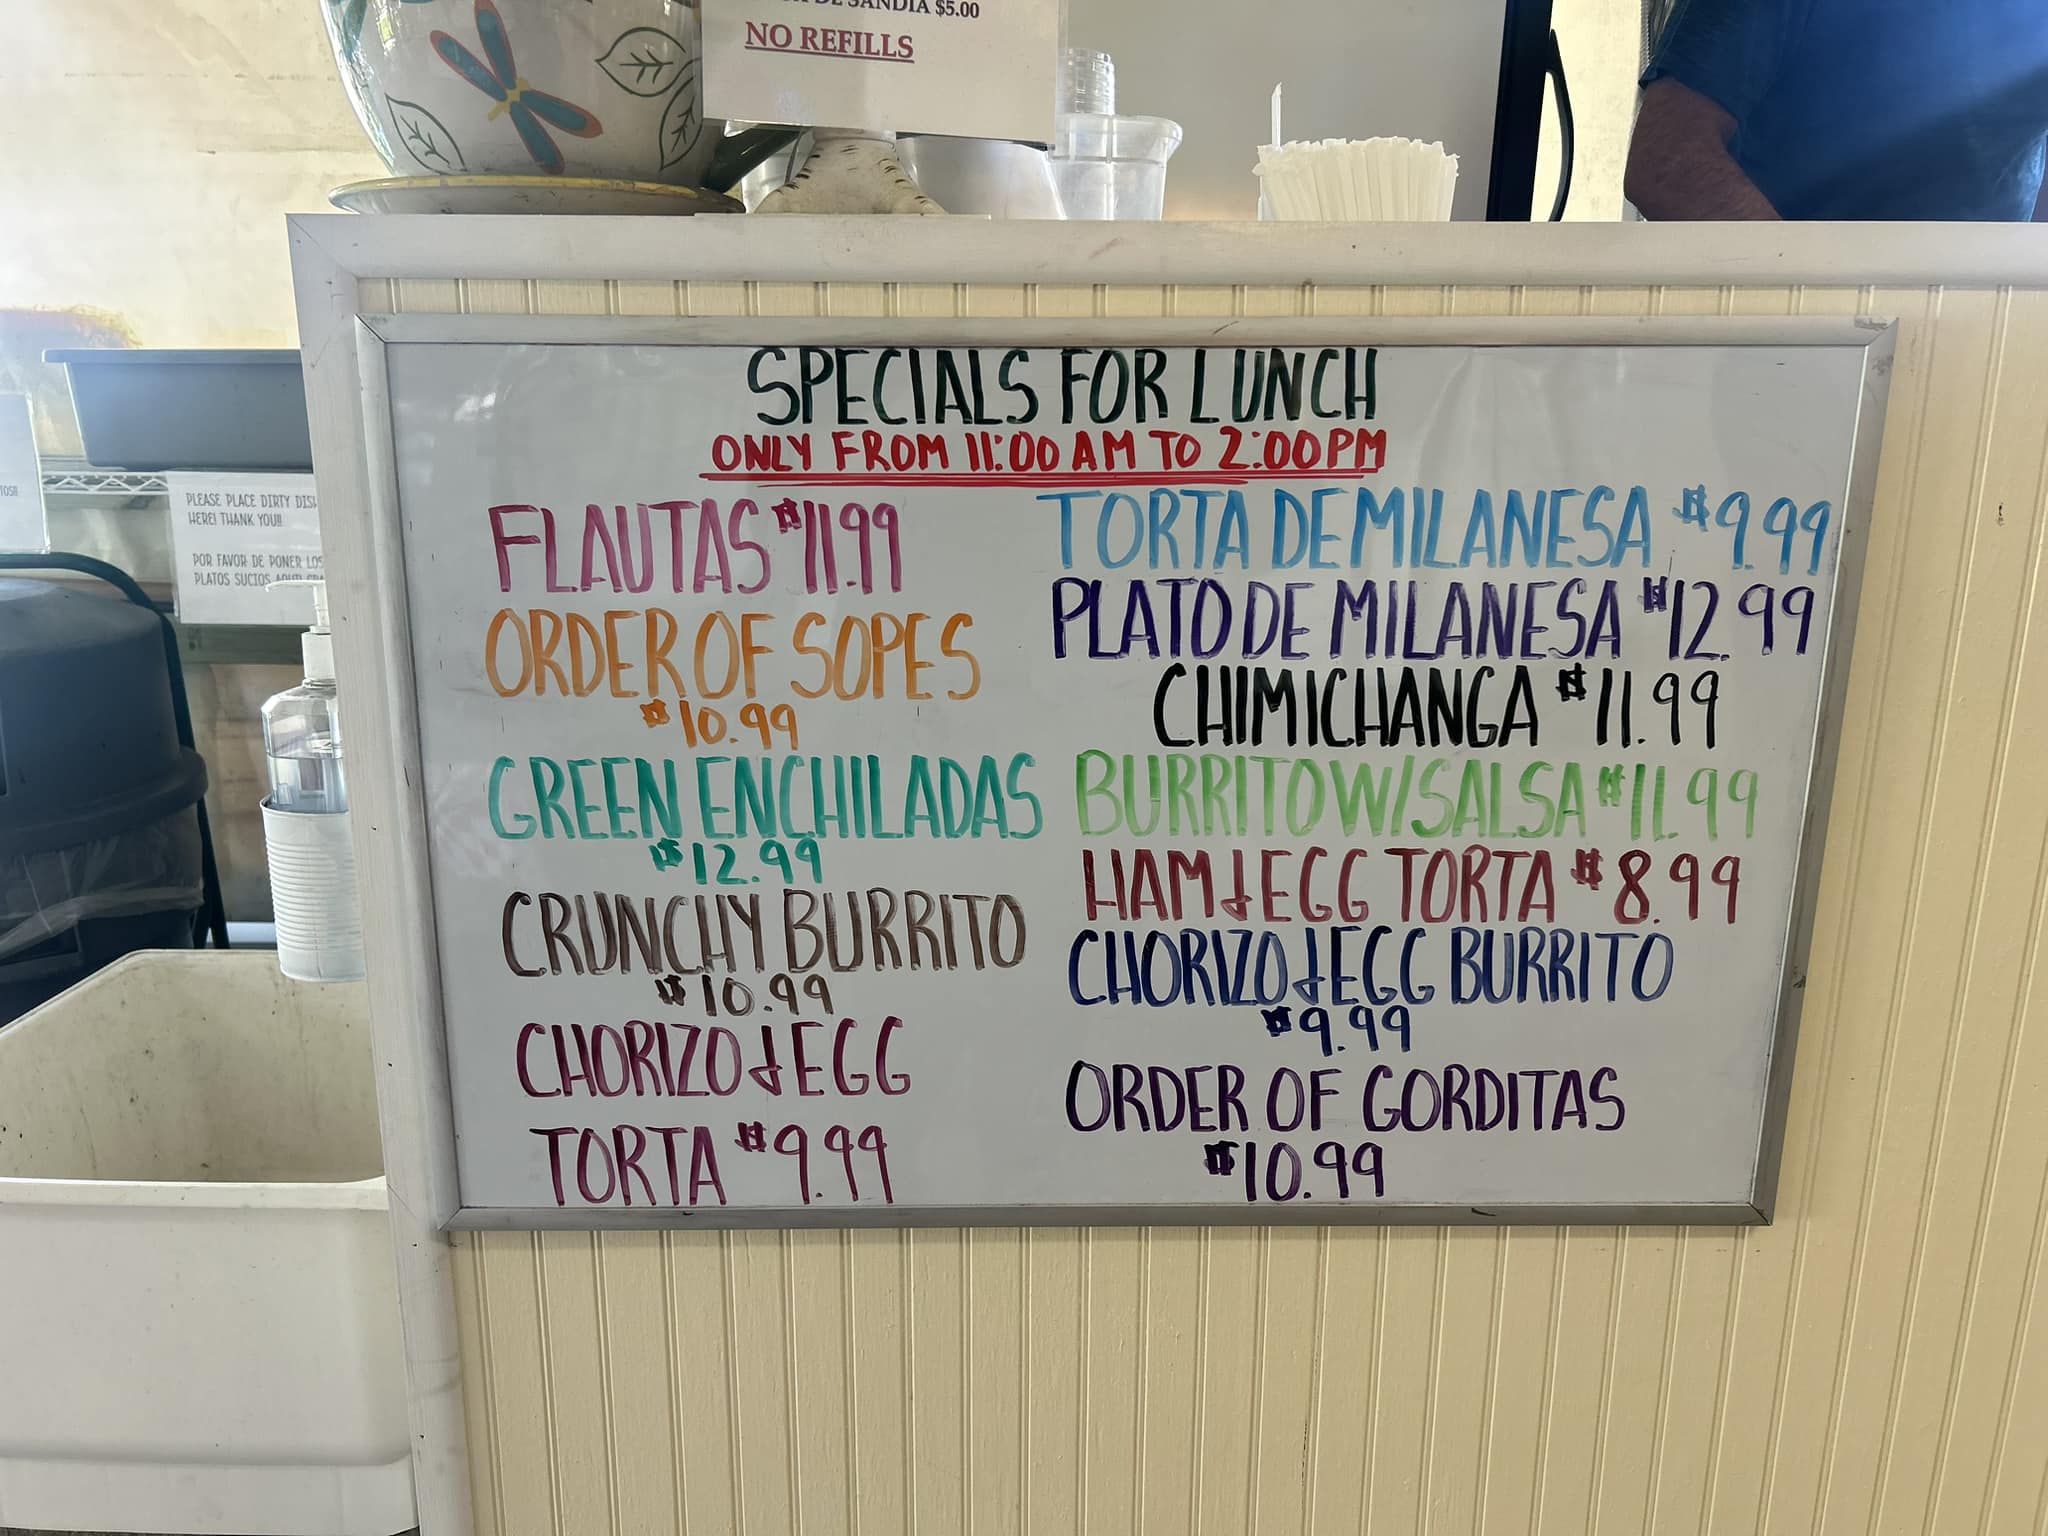 DE SANDIA $5.00
NO REFILLS
PLEASE PLACE DIRTY
HERE! THANK YOU!!
POR FAVOR DE PONER LOS
PLATOS SUCIOS
SPECIALS FOR LUNCH
ONLY FROM 11:00 AM TO 2:00PM
FLAUTAS $11.99
ORDER OF SOPES
$10.99
GREEN ENCHILADAS
$12.99
CRUNCHY BURRITO
$10.99
CHORIZO & EGG
TORTA $9.99
TORTA DE MILANESA $9.99
PLATO DE MILANESA $12.99
CHIMICHANGA $11.99
BURRITO W/SALSA $11.99
HAM & EGG TORTA $8.99
CHORIZO & EGG BURRITO
$9.99
ORDER OF GORDITAS
$10.99